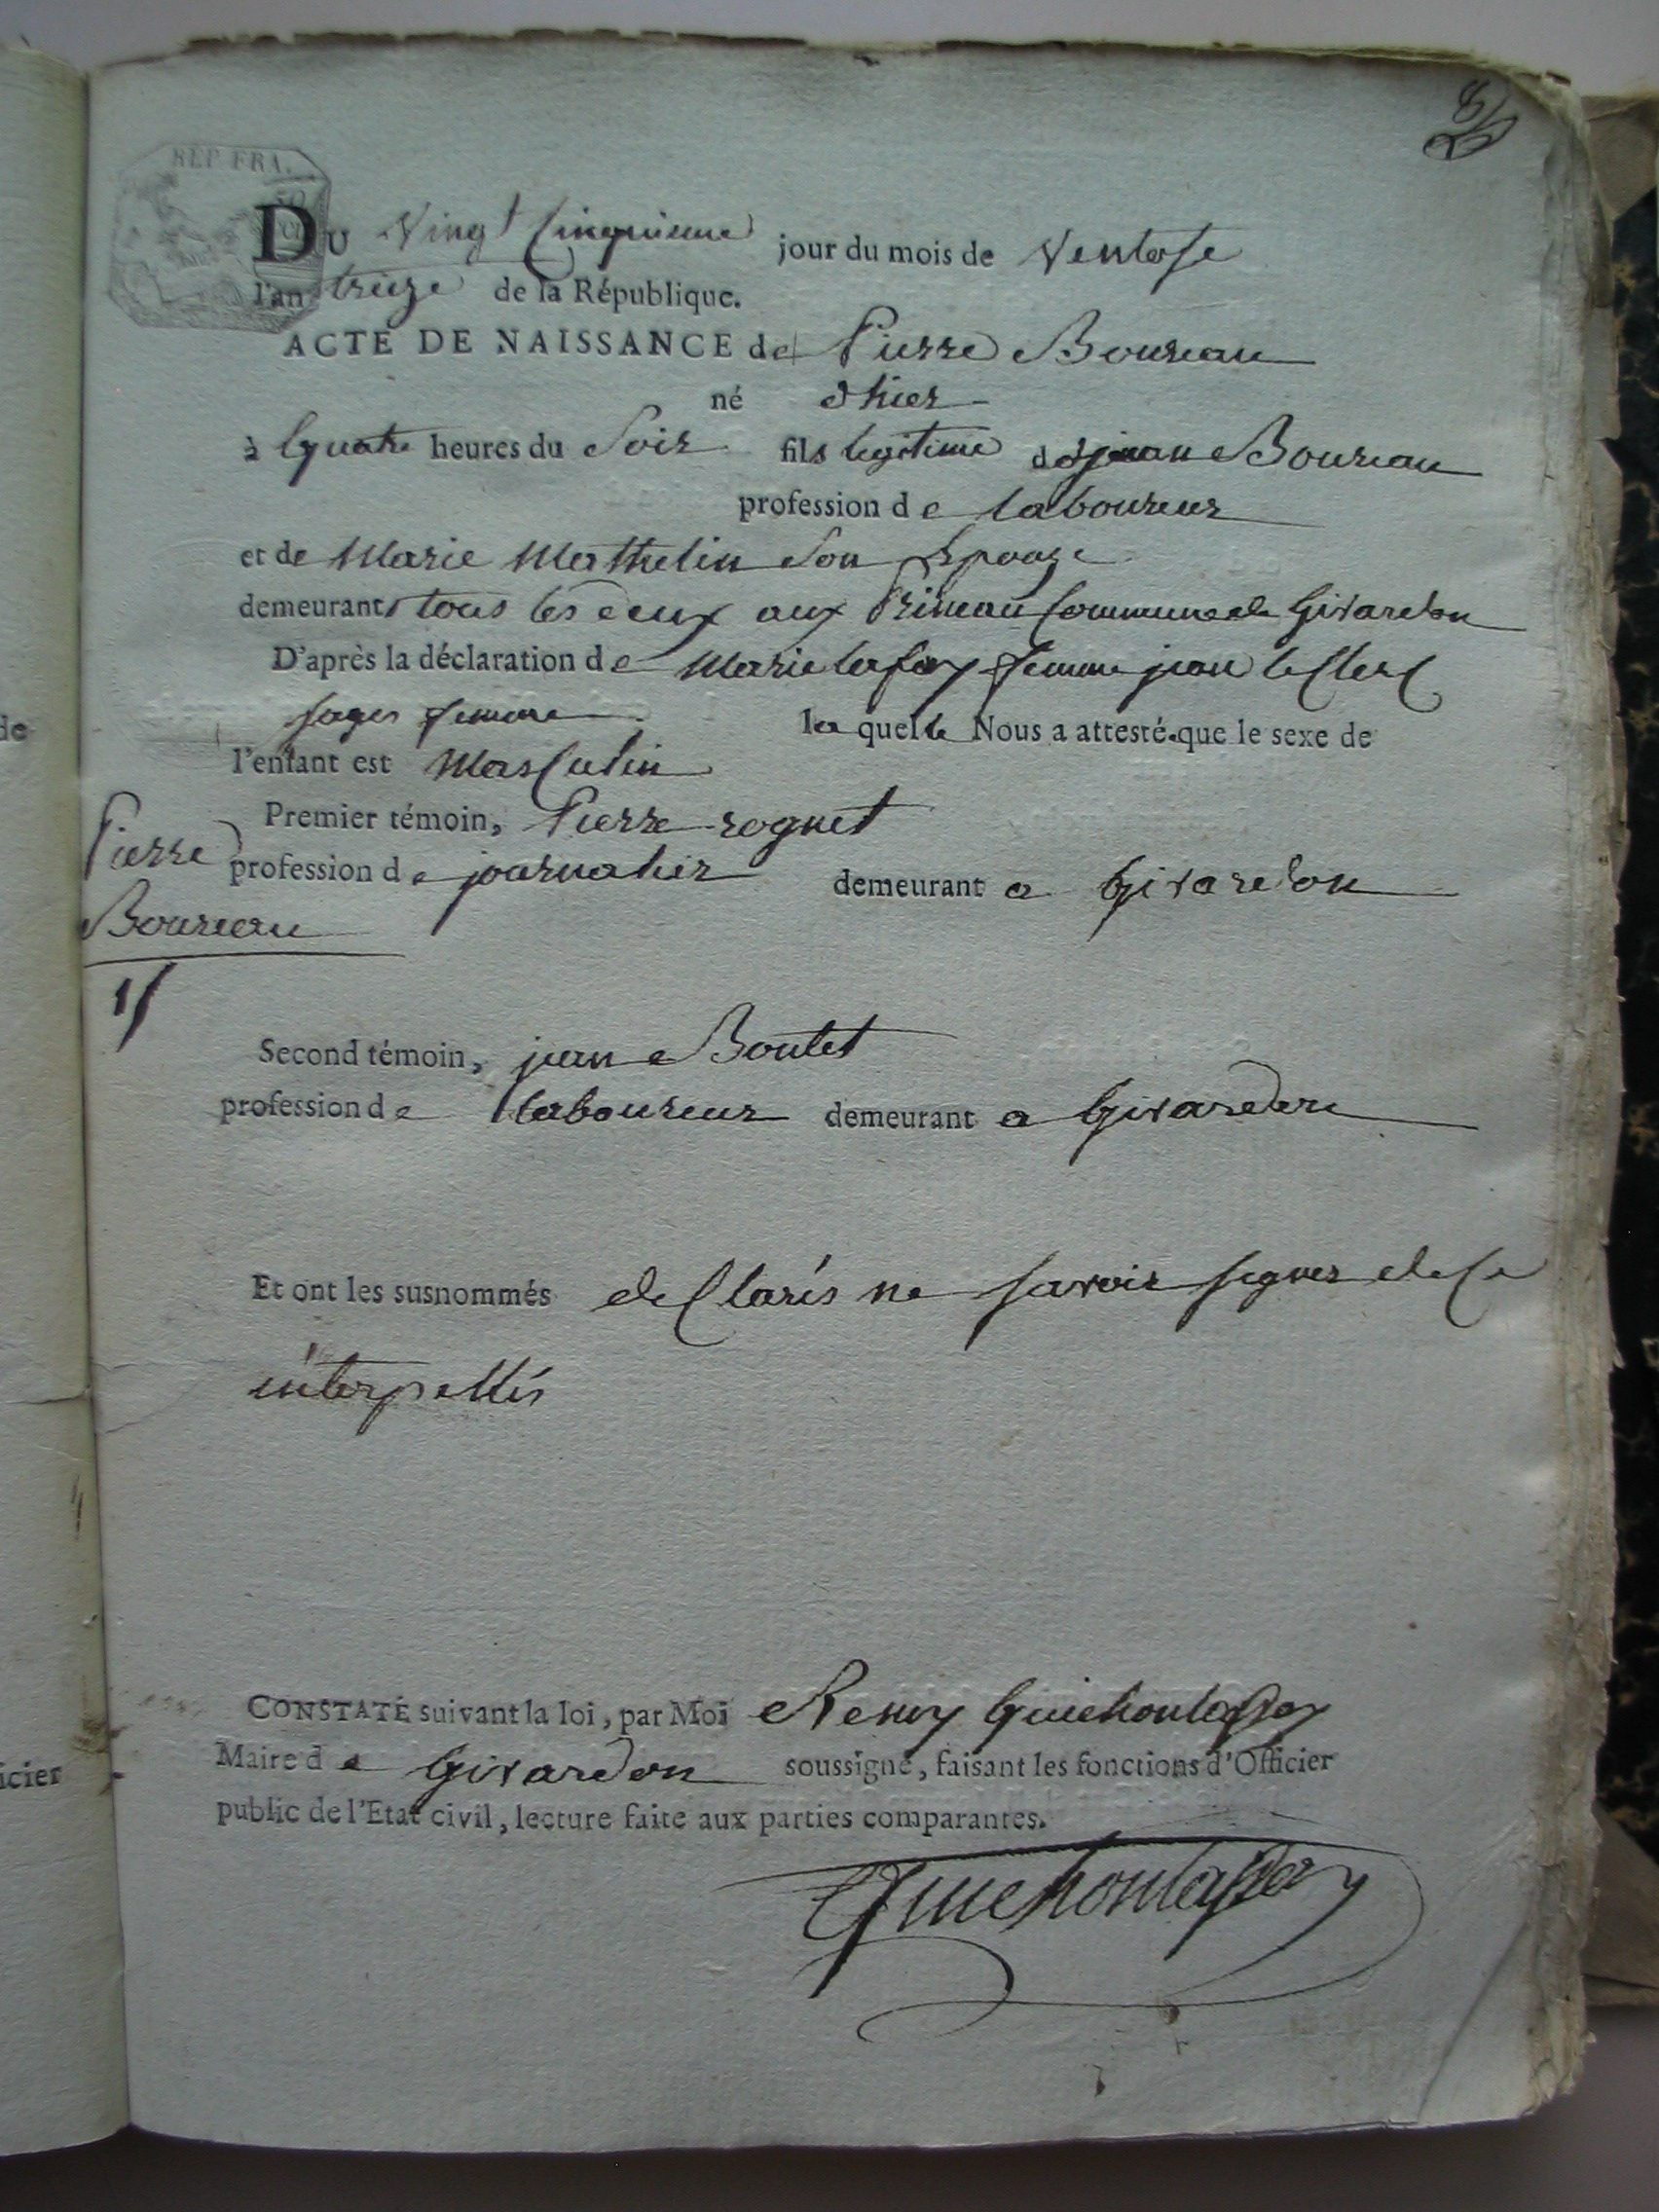 REP. FRA.
DU Vingt Cinquieme jour du mois de Ventose
l'an treize de la République.
ACTE DE NAISSANCE de Pierre Boureau
né d'hier
à Quatre heures du Soir fils legitime de jean Boureau
profession de laboureur
et de Marie Mathelin Son Epouze
demeurant tous les deux aux Commune de Givardon
D'après la déclaration de Marie lafoy femme jean le Clerc
sages femme la quelle Nous a attesté que le sexe de
l'enfant est Masculin
Premier témoin, Pierre roguet
profession de journalier demeurant a Givardon
Pierre
Boureau
Second témoin, jean Boutet
profession de laboureur demeurant a Givardon
Et ont les susnommés declarés ne savoir signer de ce
interpellés
CONSTATÉ suivant la loi, par Moi Remy
Maire de Givardon soussigné, faisant les fonctions d'Officier
public de l'Etat civil, lecture faite aux parties comparantes.
de
icier